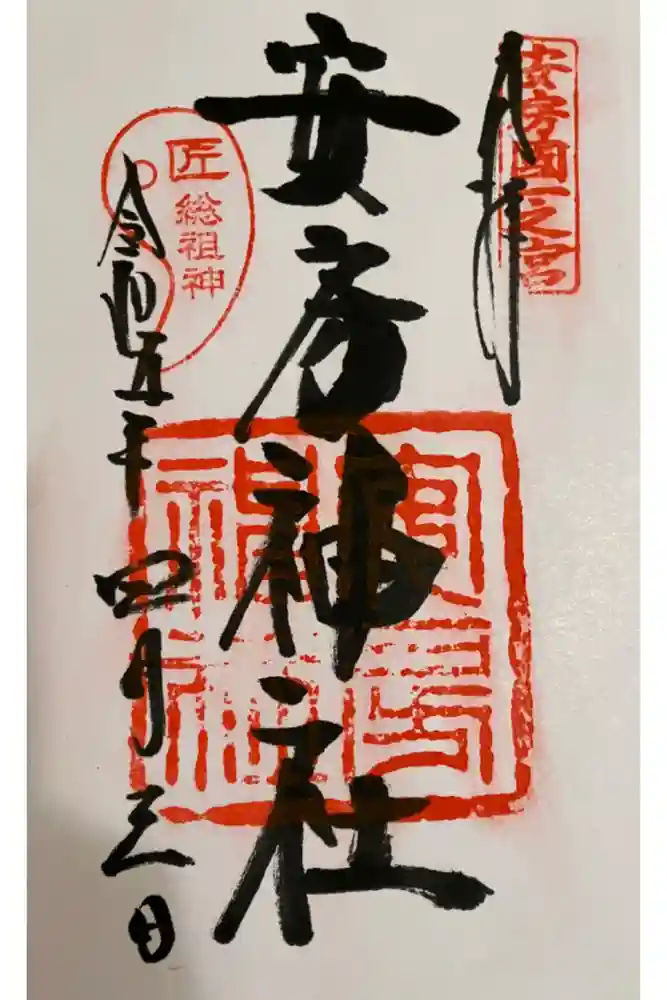 奉拝
安房國一之宮
安房神社
安房神社
匠総祖神
令和五年四月三日